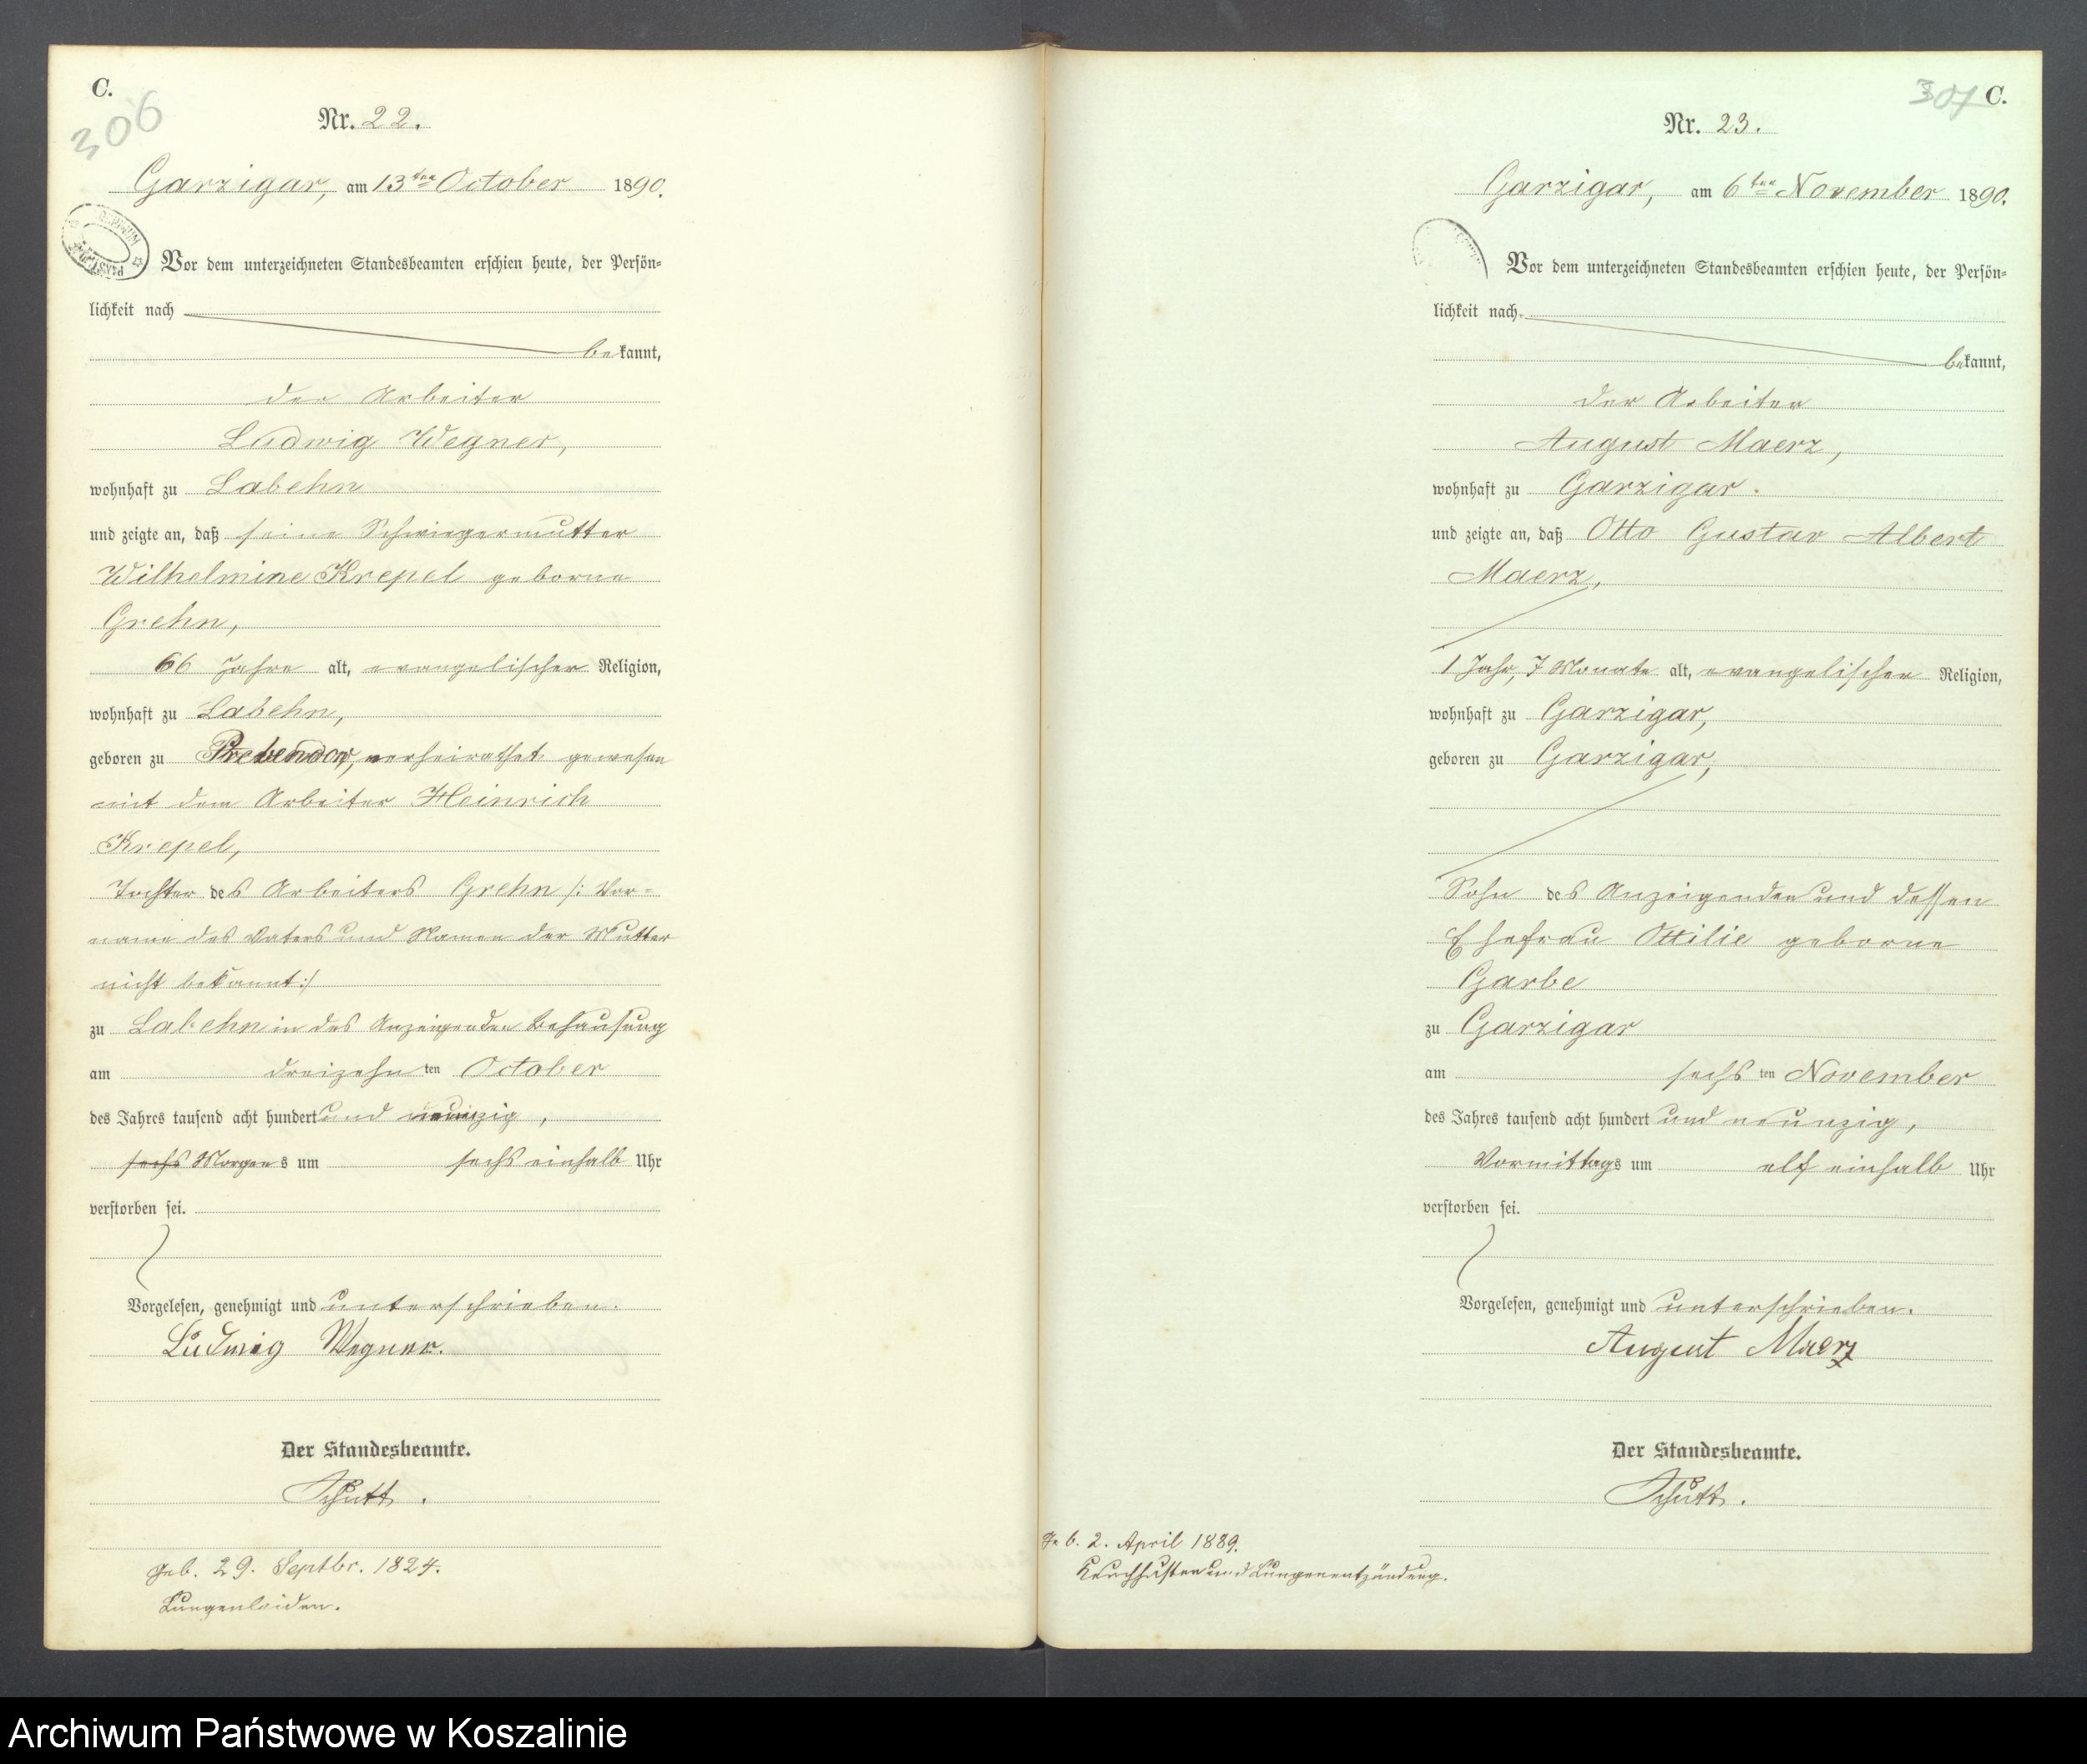 C.
306
Nr. 22.
Garzigar, am 13ten October 1890.
Vor dem unterzeichneten Standesbeamten erschien heute, der Persön-
lichkeit nach
bekannt,
der Arbeiter
Ludwig Wegner,
wohnhaft zu Labehn
und zeigte an, daß seine Schwiegermutter
Wilhelmine Krepel geborne
Grehn,
66 Jahre alt, evangelischer Religion,
wohnhaft zu Labehn,
geboren zu Prebendow, verheirathet gewesen
mit dem Arbeiter Heinrich
Krepel,
Tochter des Arbeiters Grehn /: Vor-
name des Vaters und Namen der Mutter
nicht bekannt :/
zu Labehn in des Anzeigenden Behausung
am dreizehnten October
des Jahres tausend acht hundert und neunzig,
sechs Morgens um sechs einhalb Uhr
verstorben sei.
Vorgelesen, genehmigt und unterschrieben.
Ludwig Wegner.
Der Standesbeamte.
Schütt.
Geb. 29. Septbr. 1824.
Lungenleiden.
307 C.
Nr. 23.
Garzigar, am 6ten November 1890.
Vor dem unterzeichneten Standesbeamten erschien heute, der Persön-
lichkeit nach
bekannt,
der Arbeiter
August Maerz,
wohnhaft zu Garzigar.
und zeigte an, daß Otto Gustav Albert
Maerz,
1 Jahr, 7 Monate alt, evangelischer Religion,
wohnhaft zu Garzigar,
geboren zu Garzigar,
Sohn des Anzeigenden und dessen
Ehefrau Ottilie geborne
Garbe
zu Garzigar
am sechsten November
des Jahres tausend acht hundert und neunzig,
Vormittags um elf einhalb Uhr
verstorben sei.
Vorgelesen, genehmigt und unterschrieben.
August Maerz
Der Standesbeamte.
Schütt.
Geb. 2. April 1889.
Keuchhusten und Lungenentzündung.
Archiwum Państwowe w Koszalinie